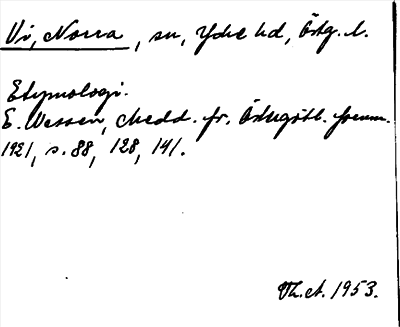 Vi, Norra, sn, Ydre hd, Östg. l.
Etymologi.
E. Wessén, Medd. fr. Östergötl. fornm.
1921, s. 88, 128, 141.
Th. A. 1953.